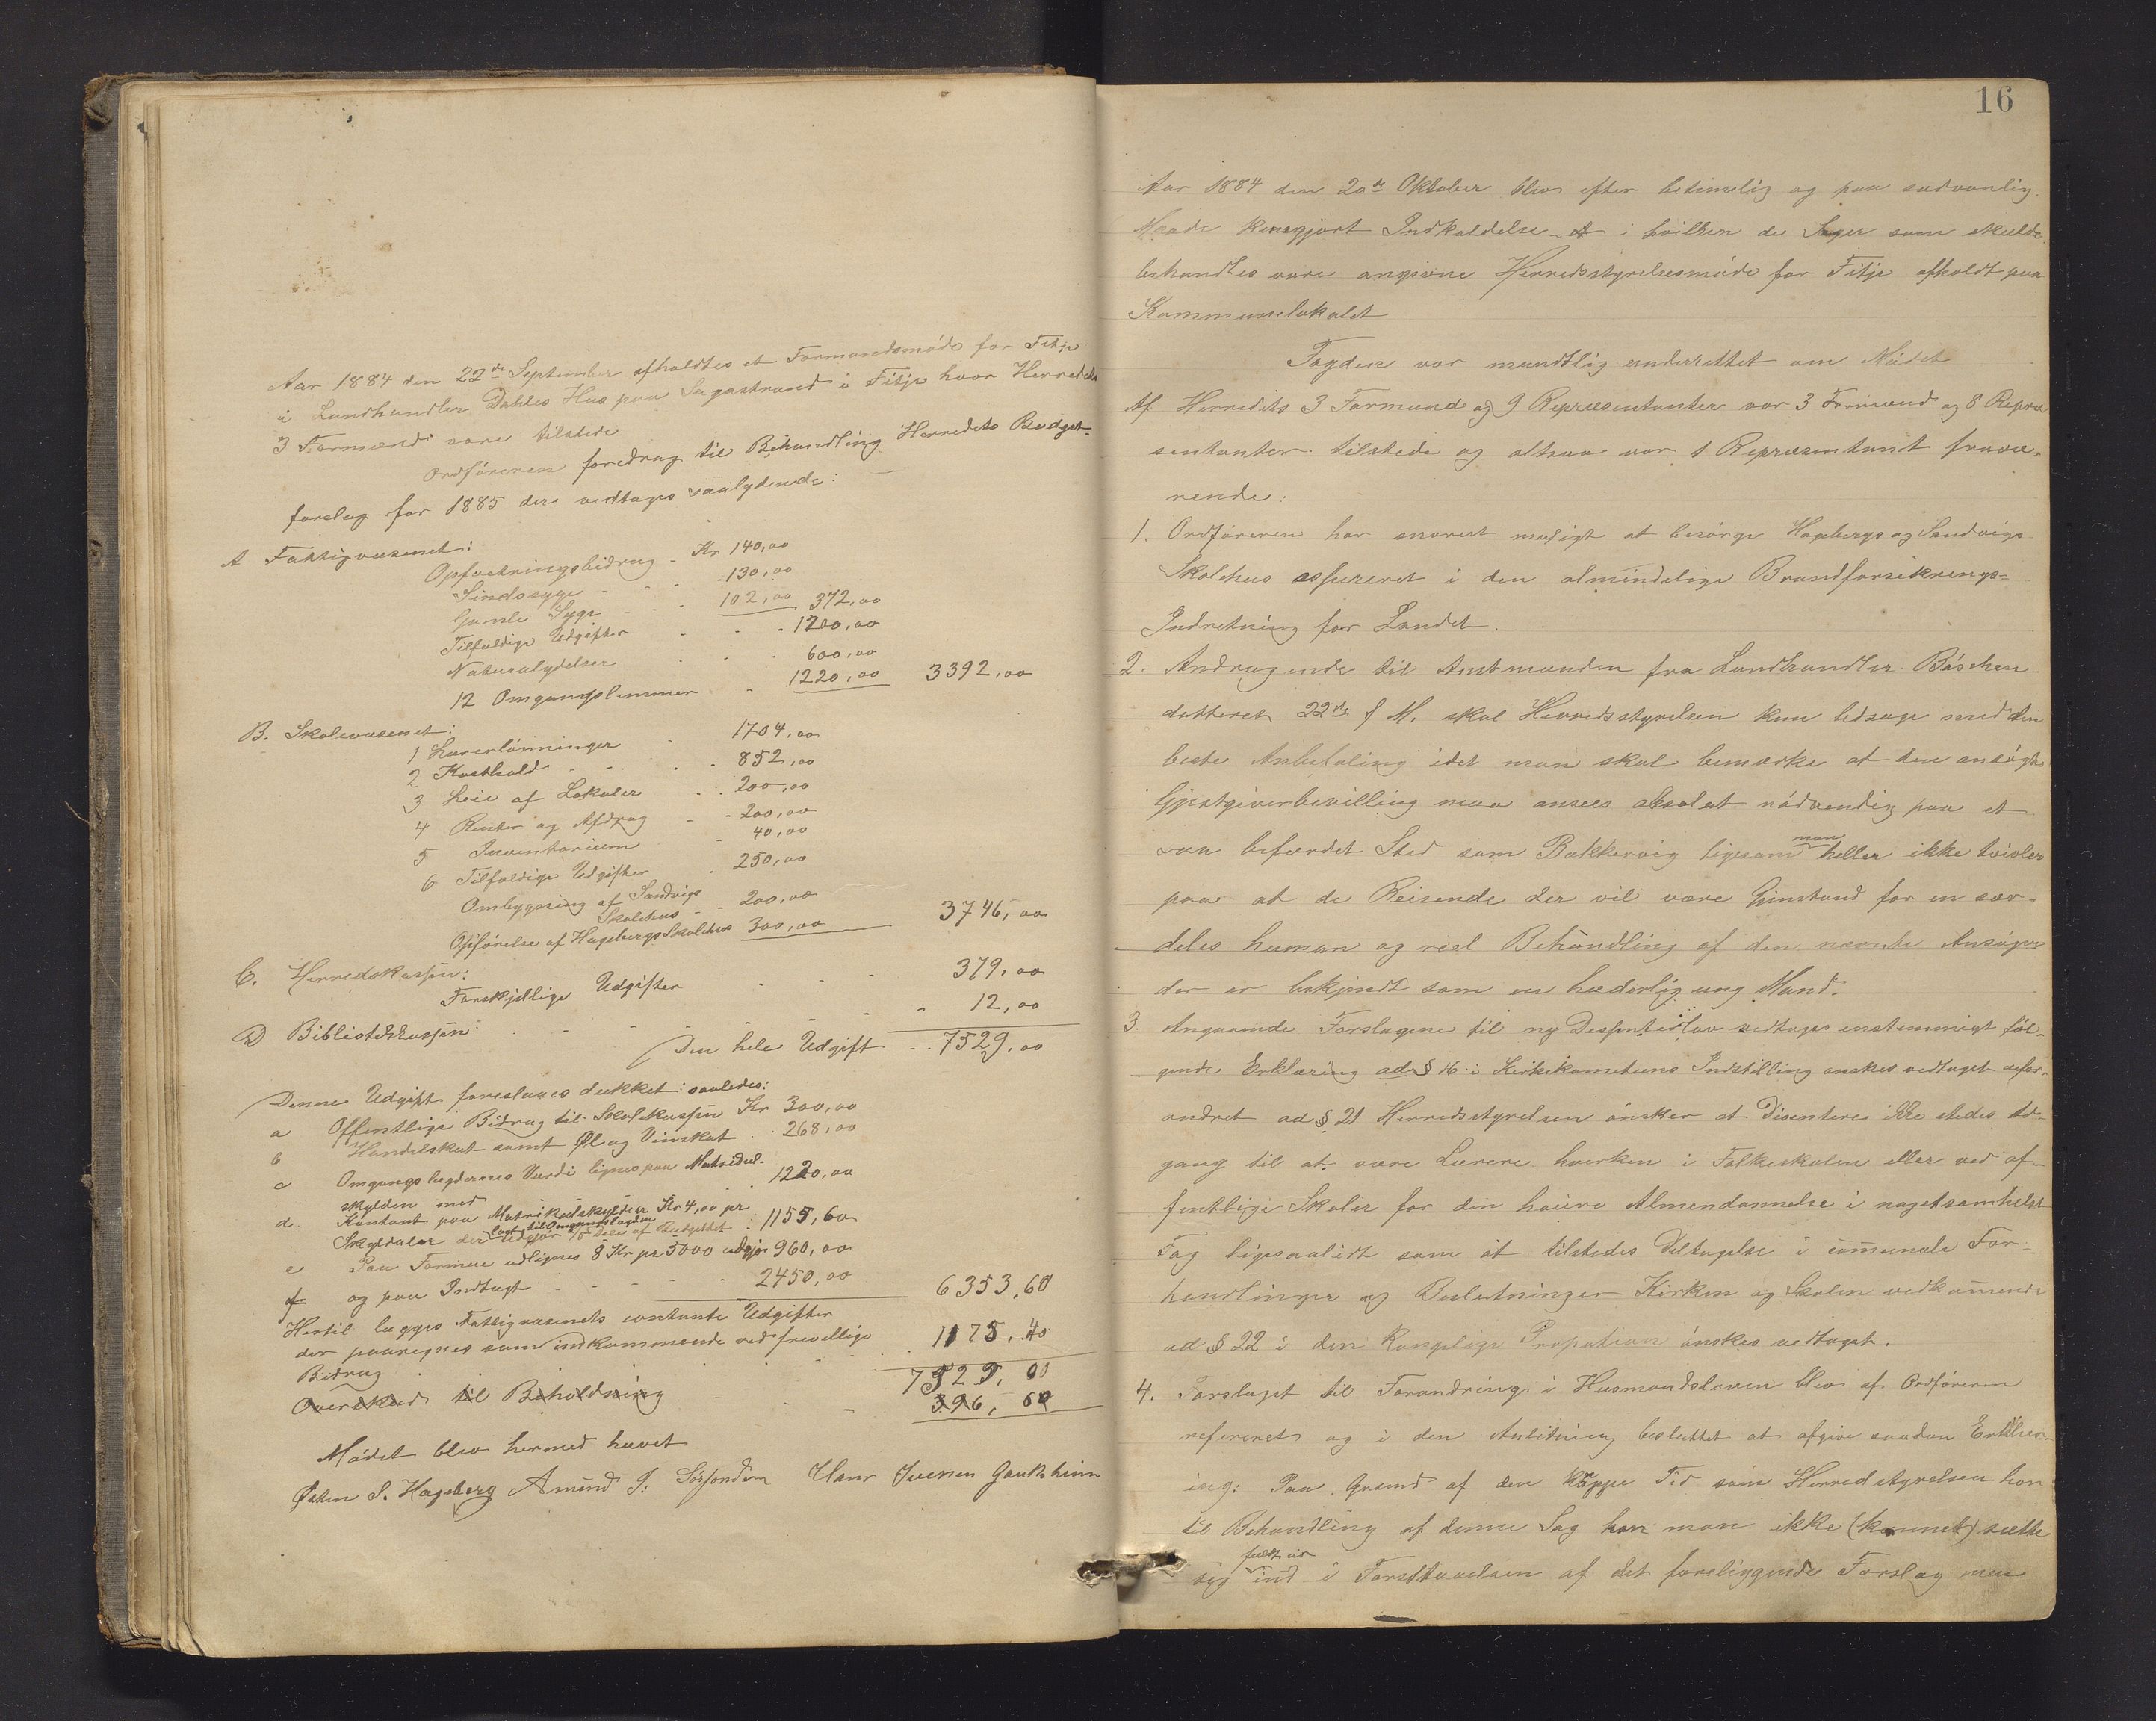 Aar 1884 den 22de September afholdtes et Formandsmøde for Fitje
i Landhandler Dahles Hus paa Sagastrand i Fitje hvor Herredets
3 Formænd vare tilstede
Ordføreren foredrog til Behandling Herredets Budget-
forslag for 1885 der vedtoges saalydende:
A Fattigvæsenet:
Opfostringsbidrag - Kr 140,00
Sindssyge - - - 130,00
Gamle Syge - - - 102,00 372,00
Tilfældige Udgifter - - - 1200,00
Naturalydelser - - - 600,00
12 Omgangslemmer - 1220,00 3392,00
B. Skolevæsenet:
1 Lærerlønninger - 1704,00
2 Kosthold - - - - 852,00
3 Leie af Lokaler - - 200,00
4 Renter og Afdrag - - 200,00
5 Inventarium - 40,00
6 Tilfældige Udgifter - 250,00
Ombygning af Sandvigs
Skolehus - - 200,00
Opførelse af Hageberg Skolehus 300,00 3746,00
C. Herredskassen:
Forskjellige Udgifter - - - 379,00
D Bibliothekkassen: - - - - - - 12,00
Den hele Udgift - - 7529,00
Denne Udgift foreslaaes dækket: saaledes:
a Offentlige Bidrag til Skolekassen Kr 300,00
b Handelskat samt Øl og Vinskat . . 268,00
c Omgangslægdernes Værdi lignes paa Matrikul-
skylden med 1220,00
d. Kontant paa Matrikulskylden Kr 4,00 pr
Skyldaler der lagt til Omgangslægden
udgjør 1/5 Dele af Budgettet : 1155,60
e Paa Formue udlignes 8 Kr pr 5000 udgjør 960,00
f og paa Indtægt - - - - 2450,00 6353,60
Hertil lægges Fattigvæsenets contante Udgifter
der paaregnes som indkommende ved frivillige
Bidrag - - - - - 1175,40
7529,00
Overskud til Beholdning - - 396,60
Mødet blev hermed hævet
Østen S. Hageberg Amund J. Hans Iversen Goukheim
16
Aar 1884 den 20de Oktober blev efter betimelig og paa sedvanlig
Maade kungjort Indkaldelse - i hvilken de Sager som skulde
behandles vare angivne Herredsstyrelsesmøde for Fitje afholdt paa
Kommunelokalet
Fogden var mundtlig underrettet om Mødet
Af Herredets 3 Formænd og 9 Repræsentanter var 3 Formænd og 8 Repræ
sentanter tilstede og altsaa var 1 Repræsentant fravæ-
rende:
1. Ordføreren har snarest muligt at besørge Hagebergs og Sandvigs
Skolehus assureret i den almindelige Brandforsikrings-
Indretning for Landet.
2. Andragende til Amtmanden fra Landhandler Büschen
datteret 22de f M. skal Herredsstyrelsen kun ledsage med den
beste Anbefaling idet man skal bemærke at den ansøgte
Gjæstgiverbevilling maa ansees absolut nødvendig paa et
saa befærdet Sted som Bakkervig ligesom man heller ikke tvivler
paa at de Reisende der vil være Gjenstand for en sær-
deles human og reel Behandling af den nævnte Ansøger
der er bekjendt som en hæderlig ung Mand.
3. Angaaende Forslagene til ny Dessenterlov vedtoges enstemmigt føl-
gende Erklæring ad § 16 i Kirkekomiteens Indstilling ønskes vedtaget uefor-
andret ad § 21 Herredsstyrelsen ønsker at Disentere ikke stedes Ad-
gang til at være Lærere hverken i Folkeskolen eller ved of-
fentlige Skoler for den høiere Almendannelse i nogetsomhelst
Fag ligesaalidt som at tilstedes Deltagelse i comunale For-
handlinger og Beslutninger Kirken og Skolen vedkommende
ad § 22 i den Kongelige Propotion ønskes vedtaget.
4. Forslaget til Forandring i Husmandsloven blev af Ordføreren
refereret og i den Anledning besluttet at afgive saadan Erklær-
ing: Paa Grund af den knappe Tid som Herredstyrelsen har
til Behandling af denne Sag har man ikke (kunnet) sætte
sig fuldt ud ind i Forstaaelsen af det foreliggende Forslag men